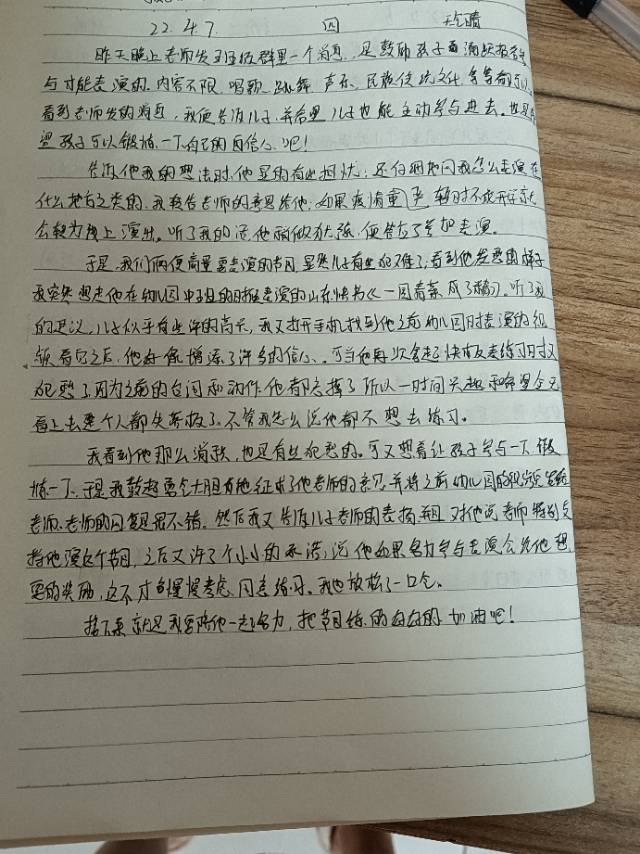 22.4.7. 四 天晴
昨天晚上老师发了班级群里一个消息,是鼓励孩子面 积极报名
与才能表演的.内容不限.唱歌.跳舞.声乐.民族传统文化.等等都可以
看到老师发的消息,我便告诉儿子.并希望儿子也能主动参与进去.也是希
望孩子可以锻炼一下自己的自信心吧!
告诉他我的想法时.他显的有些担忧;还仔细地问我怎么表演 在
什么地方之类的.我转告老师的意思给他;如果疫情重严 暂时不能开学就
会转为线上演出。听了我的话他稍微犹豫,便答应了参加表演。
于是.我们俩便商量要表演的节目,显然儿子有些犯难了,看到他发愁的样子
我突然想起他在幼儿园中班的时候表演的山东快书《一园青菜成了精》.听了我
的建议,儿子似乎有些许的高兴,我又打开手机找到他之前幼儿园时表演的视
频看完之后.他好像增添了许多的信心、可当他再次拿起了快板去练习时又
犯愁了因为之前的台词和动作他都忘掉了所以一时间兴趣和希望全无
看上去整个人都失落极了.不管我怎么说他都不想去练习。
我看到他那么消极,也是有些犯愁的。可又想着让孩子参与一下.锻
炼一下.于是我鼓起勇气大胆 他征求了他老师的意见.并将之前幼儿园的视频发给
老师.老师的回复是很不错。然后我又告诉儿子老师的表扬.并且对他说老师特别支
持他演这个节目,之后又许了个小小的承诺;说他如果努力参与表演会给他想
要的奖励,这不才 慢慢考虑.同意练习。我也放松了一口气。
接下来就是我要陪他一起努力,把节目练的 的 加油吧!